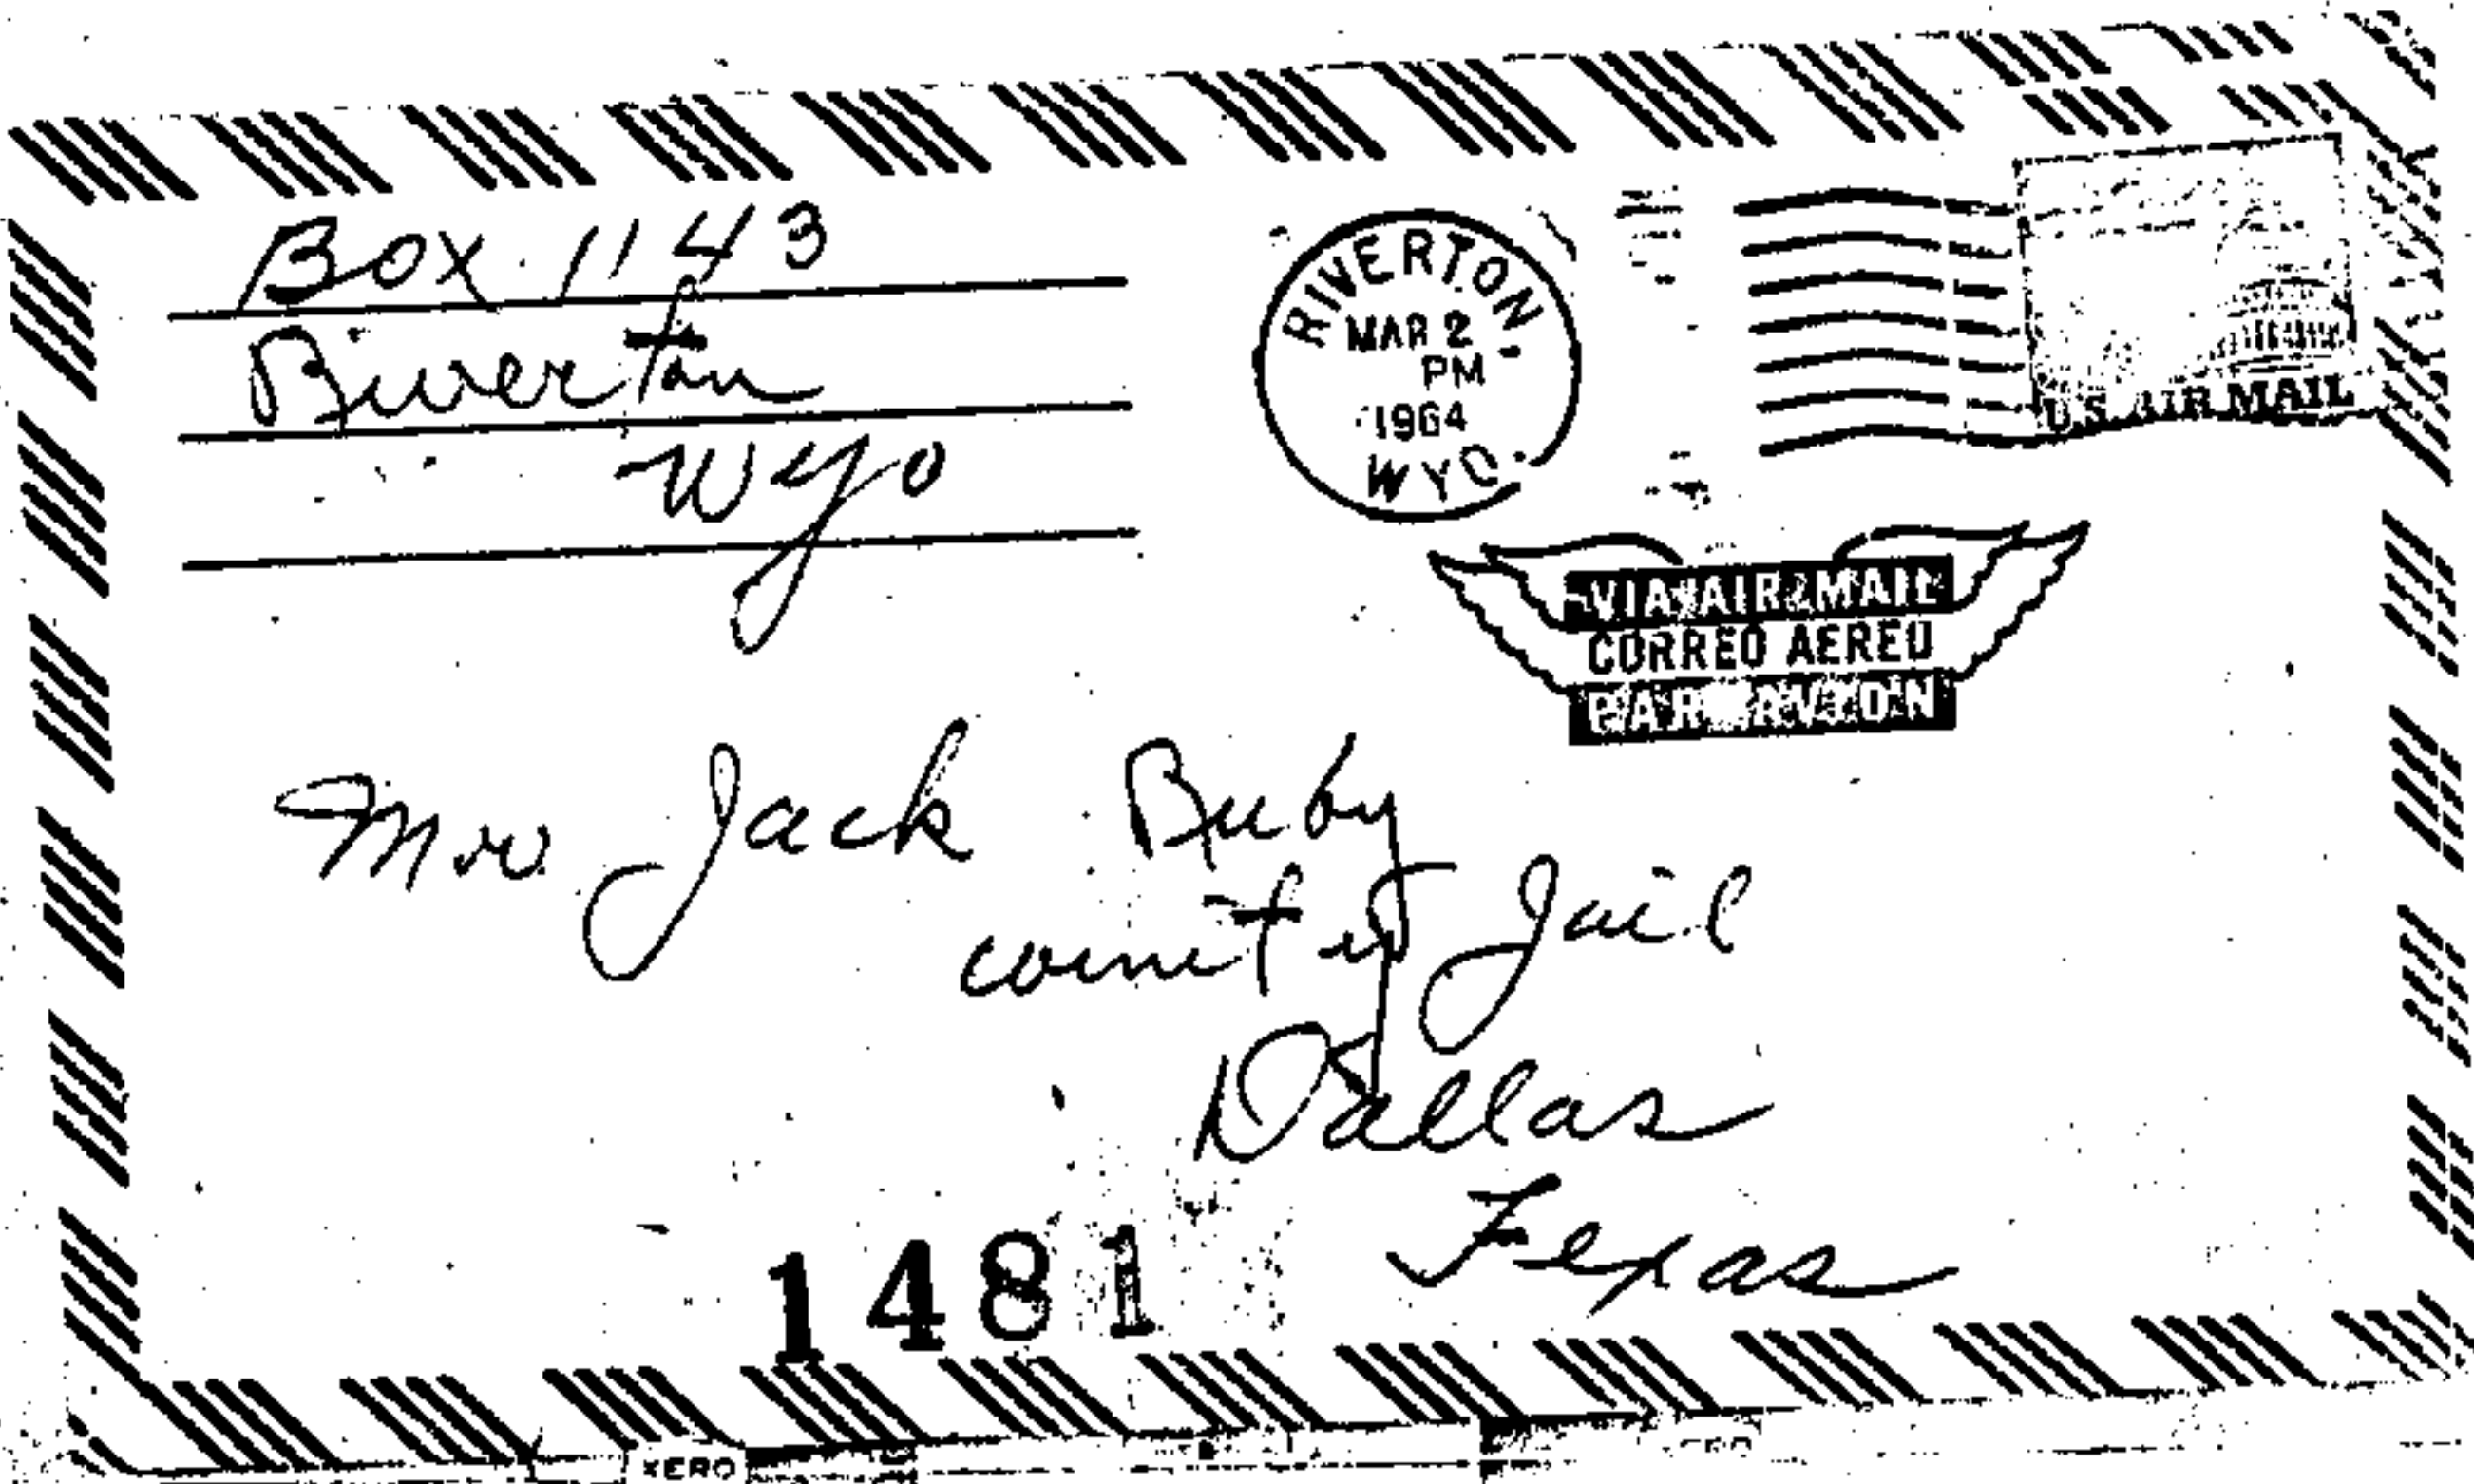 Box 1143
Riverton
Wyo
RIVERTON,
MAR 2
PM
1964
WYO.
U.S. AIR MAIL
VIA AIR MAIL
CORREO AEREO
PAR AVION
Mr. Jack Ruby
County Jail
Dallas
Texas
1481
XERO